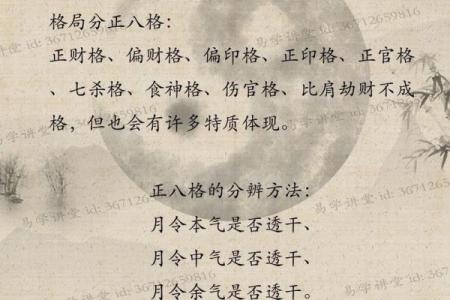 格局分正八格：
正财格、偏财格、偏印格、正印格、正官格
、七杀格、食神格、伤官格、比肩劫财不成
格，但也会有许多特质体现。
正八格的分辨方法：
月令本气是否透干、
月令中气是否透干、
月令余气是否透干。
易学讲堂 id: 36712659816